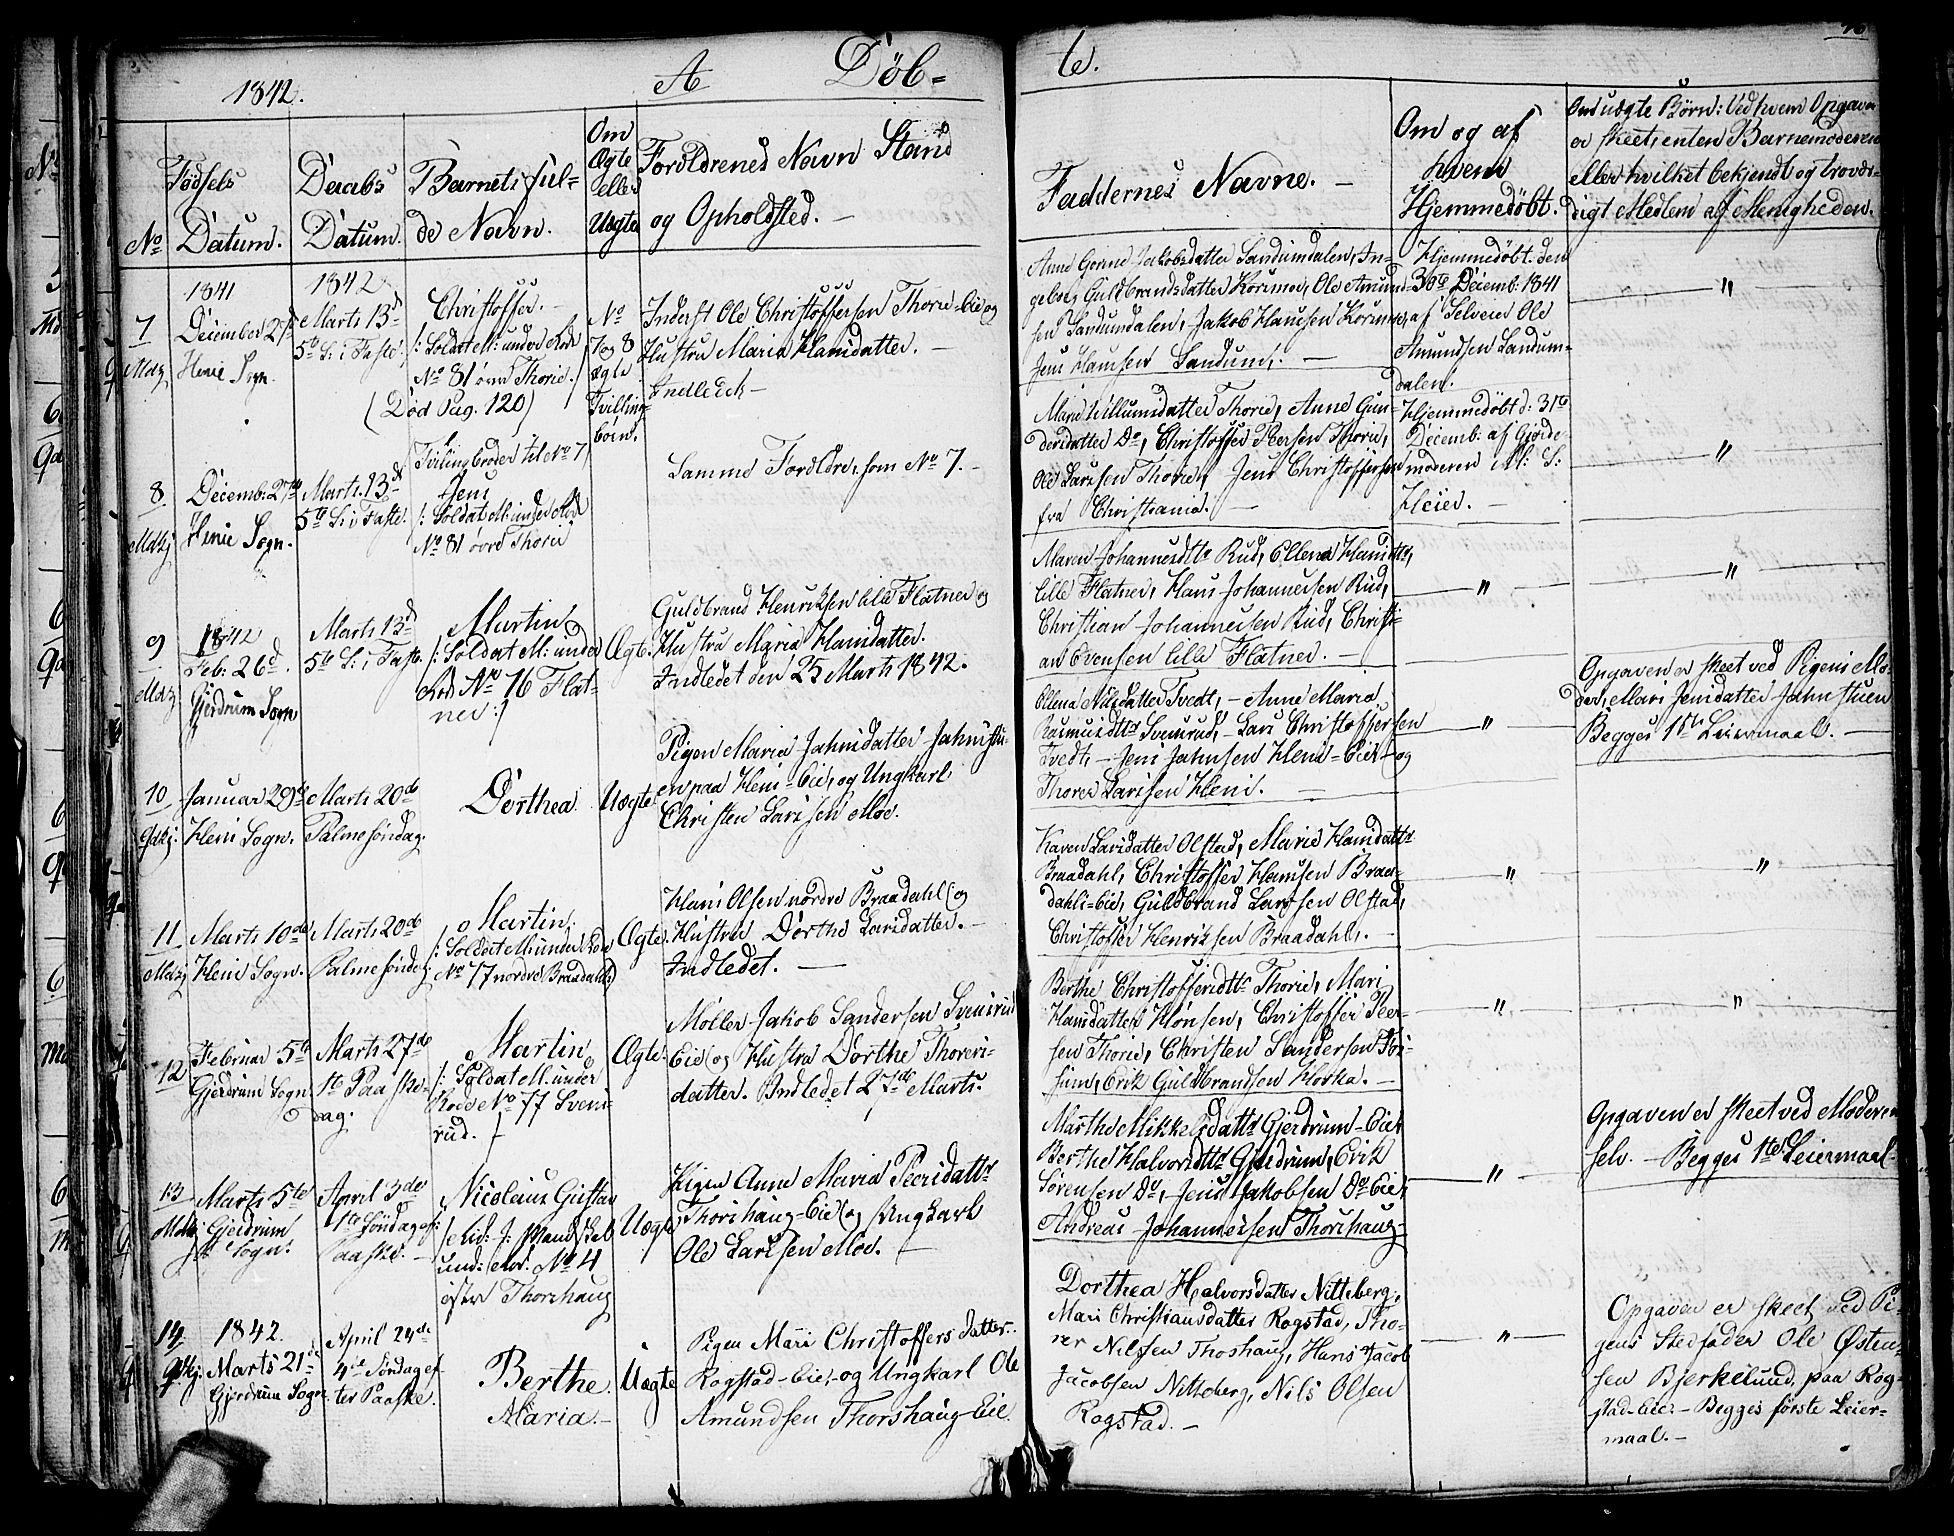 1842.
A
Døb=
te.
No
Fødsels
Datum.
Daabs
Datum.
Barnets ful=
de Navn.
Om
Ægte
eller
Uægte
Forældrenes Navn Stand
og Opholdsted. —
Faddernes Navne. —
Om og af
hvem
Hjemmedøbt.
Om uægte Børn: Ved hvem Opgaven
er skeet, enten Barnemoderen
eller hvilket bekjendt og trovær=
digt Medlem af Menigheden.
7
Mdkj
1841
December 27de
Henie Sogn.
1842
Marts 13d
5te S: i Faste.
Christoffer.
/: Soldat M: under Rode
No 81 øvre Thorie. /
(Død Pag. 120)
No
7 og 8
Ægte
Tvilling=
børn.
Inderst Ole Christoffersen Thorie-Eie og
Hustru Maria Hansdatter. —
Indledet —
Anne Gurine Jakobsdatter Sandumdalen, In=
geborg Guldbrandsdatter Korsmoe, Ole Amund=
sen Sandumdalen, Jakob Hansen Korsmoe,
Jens Hansen Sandum. —
Hjemmedøbt den
30te Decemb: 1841
af Selveier Ole
Amundsen Sandum=
dalen.
"
8.
Mdkj
Decemb: 27de
Henie Sogn.
Marts 13d
5te S: i Faste.
Tvilingbroder til No 7
Jens
/: Soldat M: under Rode
No 81 øvre Thorie
Samme Forældre, som No 7. —
Marie Willumsdatter Thorie, Anne Gun=
dersdatter Do, Christoffer Peersen Thorie,
Ole Larsen Thorie, Jens Christoffersen
fra Christiania. —
Hjemmedøbt d: 31te
Decemb: af Gjorde=
moderen M: S:
Heier. —
"
9
Mdkj
1842
Feb: 26d.
Gjerdrum Sogn
Marts 13d
5te S: i Faste.
Martin
/: Soldat M: under
Rode No 76 Flat=
ner :/
Ægte.
Guldbrand Henriksen lille Flatner og
Hustru Maria Hansdatter.
Indledet den 25 Marts 1842.
Maren Johannesdtr Rud, Ellena Hansdtr,
lille Flatner, Hans Johannesen Rud,
Christian Johannesen Rud, Christi=
an Evensen lille Flatner. —
"
"
10
Qdkj:
Januar 29de
Heni Sogn.
Marts 20de
Palmesøndag.
Dorthea.
Uægte
Pigen Maria Jahnsdatter Jahnstu=
en paa Heni-Eie, og Ungkarl
Christen Larsen Moe.
Ellena Nilsdatter Tvedt, — Anne Maria
Rasmusdtr Svensrud, — Lars Christoffersen
Tvedt, — Jens Jahnsen Heni-Eie og
Thorer Larsen Heni. —
"
Opgaven er skeet ved Pigens Mo=
der, Mari Jensdatter Jahnstuen
Begges 1ste Leiermaal. —
11
Mdkj
Marts 10de
Heni Sogn.
Marts 20de
Palmesøndag
Martin
/: Soldat M: under Rode
No 77 nordre Braadahl:/
Ægte.
Hans Olsen nordre Braadahl og
Hustru Dorthe Larsdatter. —
Indledet. —
Karen Larsdatter Olstad, Marie Hansdattr
Braadahl, Christoffer Hansen Braa=
dahls-Eie, Guldbrand Larsen Olstad,
Christoffer Henriksen Braadahl. —
"
"
12
Februar 5te
Gjerdrum Sogn
Marts 27de
1ste Paaske=
dag.
Martin
/: Soldat M: under
Rode No 77 Svens=
rud. /
Ægte.
Møller Jakob Sandersen Svensrud
Eie og Hustru Dorthe Thorers=
datter. Indledet 27de Marts.
Berthe Christoffersdtr Thorie, Mari
Hansdatter Hønsen, Christoffer Peer=
sen Thorie, Christen Sandersen
Erik Guldbrandsen —
"
"
13
Mdkj
Marts 5te
Gjerdrum
Sogn.
April 3de
1ste Søndag ef:
Paaske. —
Nicolaus Gustav
Mandskab
und: Ro: No 4
østre Thorshaug
Uægte
Pigen Anne Maria Peersdattr
Thorshaug-Eie og Ungkarl
Ole Larsen Moe. —
Marthe Mikkelsdattr Gjerdrum-Eie,
Berthe Halvorsdtr Gjerdrum, Erik
Sørensen Do, Jens Jakobsen Do Eie,
Andreas Johannesen Thorshaug
"
Opgaven er skeet ved Moderen
selv. — Begges 1ste Leiermaal
14.
Qdkj.
1842.
Marts 21de
Gjerdrum Sogn
April 24de
4de Søndag ef
ter Paaske.
Berthe
Maria. —
Uægte
Pigen Mari Christoffersdatter
Rogstad-Eie, og Ungkarl Ole
Amundsen Thorshaug-Eie.
Dorthea Halvorsdatter Nitteberg,
Mari Christiansdatter Rogstad, Tho=
rer Nilsen Thoshaug, Hans Jacob
Jacobsen Nitteberg, Nils Olsen
Rogstad. —
"
Opgaven er skeet ved Pi=
gens Stedfader Ole Østen=
sen Bjerkelund, paa Rog=
stad-Eie. — Begges første Leier=
maal. —